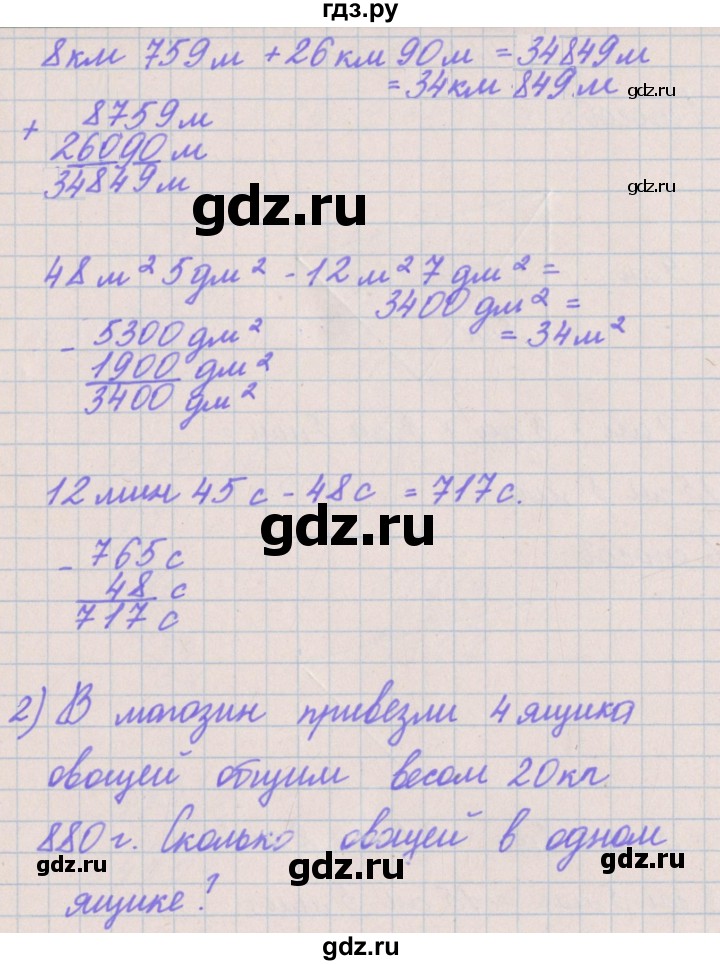 гдз.ру
8км 759м + 26км 90м = 34849м
= 34км 849м
gdz.ru
+ 8759м
26090м
34849м
gdz.ru
gdz.ru
48м² 5дм² - 12м² 7дм² =
3400дм² =
= 34м²
- 5300дм²
1900дм²
3400дм²
12мин 45с - 48с = 717с.
gdz.ru
- 765с
48с
717с
2) В магазин привезли 4 ящика
овощей общим весом 20кг
880г. Сколько овощей в одном
gdz.ru
gdz.ru
gdz.ru
ящике?
gdz.ru